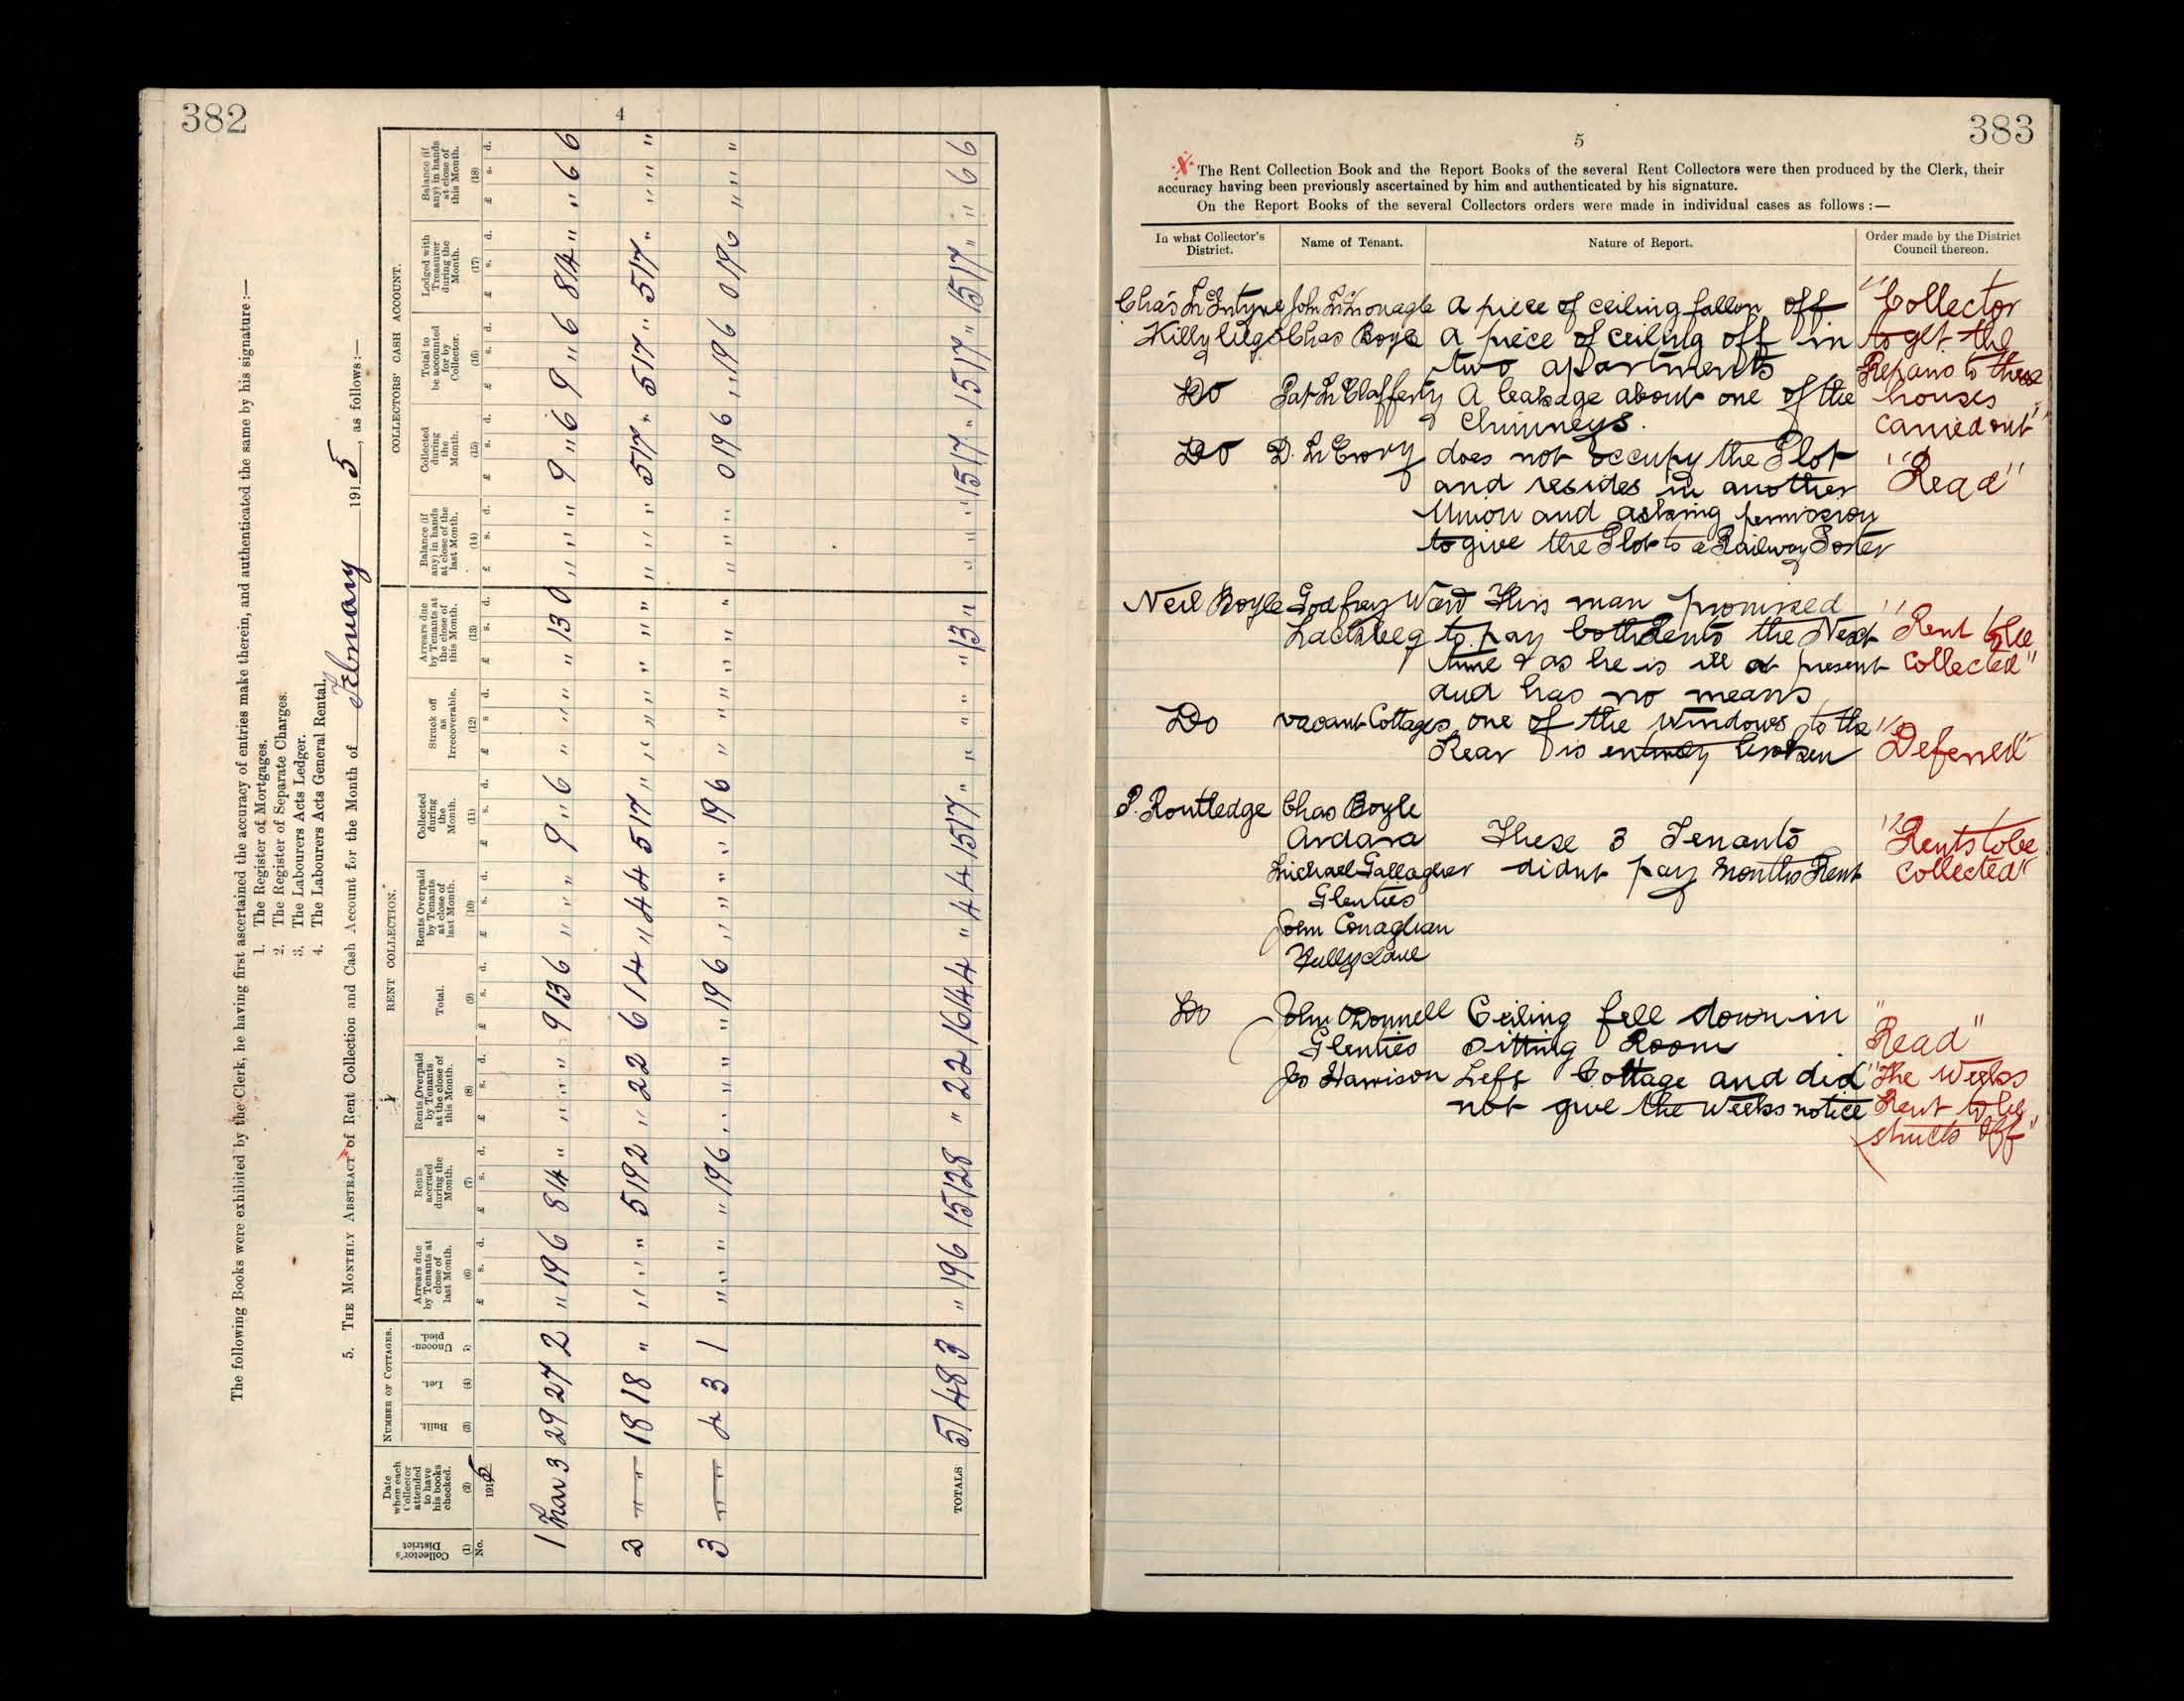 382
4
The following Books were exhibited by the Clerk, he having first ascertained the accuracy of entries make therein, and authenticated the same by his signature:—
1. The Register of Mortgages.
2. The Register of Separate Charges.
3. The Labourers Acts Ledger.
4. The Labourers Acts General Rental.
5. The Monthly Abstract of Rent Collection and Cash Account for the Month of February 1915, as follows:—
NUMBER OF COTTAGES. RENT COLLECTION. COLLECTORS' CASH ACCOUNT.
Collector's District (1) No.
Date when each Collector attended to have his books checked. (2) 1915
Built. (3)
Let. (4)
Unoccupied.
Arrears due by Tenants at close of last Month. (6) £ s. d.
Rents accrued during the Month. (7) £ s. d.
Rents Overpaid by Tenants at the close of this Month. (8) £ s. d.
Total. (9) £ s. d.
Rents Overpaid by Tenants at close of last Month. (10) £ s. d.
Collected during the Month. (11) £ s. d.
Struck off as Irrecoverable. (12) £ s d.
Arrears due by Tenants at the close of this Month. (13) £ s. d.
Balance (if any) in hands at close of the last Month. (14) £ s. d.
Collected during the Month. (15) £ s. d.
Total to be accounted for by Collector. (16) £ s. d.
Lodged with Treasurer during the Month. (17) £ s. d.
Balance (if any) in hands at close of this Month. (18) £ s. d.
1 Mar 3 29 27 2 " 19 6 8 14 " " " " 9 13 6 " " " 9 " 6 " " " " 13 0 " " " 9 " 6 9 " 6 8 14 " " 6 6
2 " 18 18 " " " " 5 19 2 " 2 2 6 1 4 " 4 4 5 17 " " " " " " " " " " 5 17 " 5 17 " 5 17 " " " "
3 " 4 3 1 " " " " 19 6 " " " " 19 6 " " " " 19 6 " " " " " " " " 0 19 6 " 19 6 0 19 6 " " "
TOTALS 51 48 3 " 19 6 15 12 8 " 2 2 16 14 4 " 4 4 15 17 " " " " " 13 " " " " 15 17 " 15 17 " 15 17 " " 6 6
383
5
The Rent Collection Book and the Report Books of the several Rent Collectors were then produced by the Clerk, their
accuracy having been previously ascertained by him and authenticated by his signature.
On the Report Books of the several Collectors orders were made in individual cases as follows:—
In what Collector's District. Name of Tenant. Nature of Report. Order made by the District Council thereon.
Chas McIntyre John McMonagle A piece of ceiling fallen off "Collector
Killybegs Chas Boyle A piece of ceiling off in to get the
two apartments Repairs to these
Do Pat McClafferty A leakage about one of the houses
Chimneys. carried out"
Do D. McCrory does not occupy the Plot "Read"
and resides in another
Union and asking permission
to give the Plot to a Railway Porter
Neil Boyle Godfrey Ward This man promised
to pay both Rents the Next "Rent to be
time & as he is ill at present collected"
and has no means
Do vacant Cottages one of the windows to the
Rear is entirely broken "Deferred"
P. Routledge Chas Boyle
Ardara These 3 Tenants "Rents to be
Michael Gallagher didnt pay months Rent collected"
Glenties
John Conaghan
Do John O'Donnell Ceiling fell down in
Glenties Sitting Room "Read"
Jas Harrison Left Cottage and did "The Weeks
not give the weeks notice Rent to be
struck off"